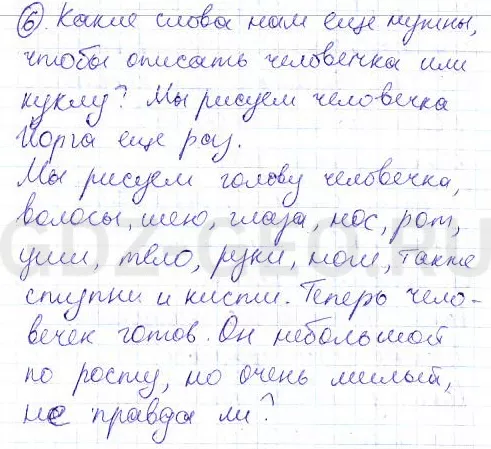 6. Какие слова нам еще нужны,
чтобы описать человечка или
куклу? Мы рисуем человечка
Йорга еще раз.
Мы рисуем голову человечка,
волосы, шею, глаза, нос, рот,
уши, тело, руки, ноги, также
ступни и кисти. Теперь чело-
вечек готов. Он небольшой
по росту, но очень милый,
не правда ли?
GDZ-GEO.RU